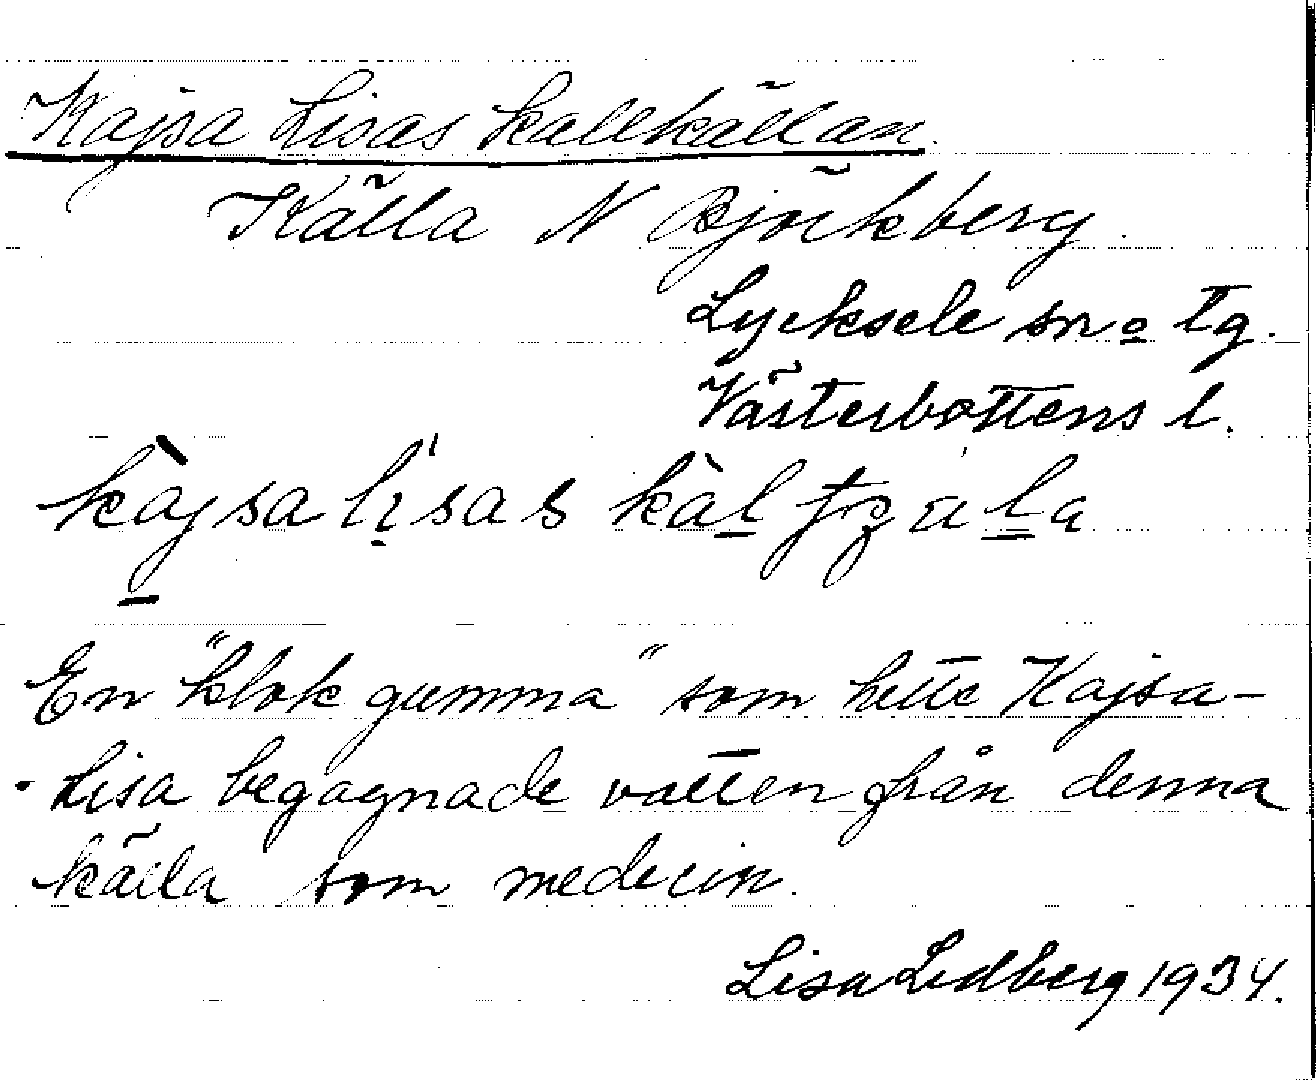 Kajsa Lisas kallkällan.
Källa N Björkberg.
Lycksele sn o tg.
Västerbottens l.
kàjsa lisas kàl
En "klok gumma" som hette Kajsa-
Lisa begagnade vatten från denna
källa som medicin.
Lisa Lidberg 1934.